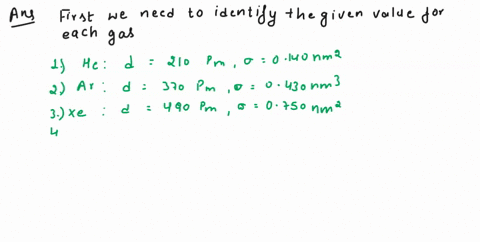 Ans First we need to identify the given value for
each gas
1) He: d = 210 Pm, σ = 0.140 nm²
2) Ar: d = 370 Pm, σ = 0.430 nm³
3.) Xe : d = 490 Pm, σ = 0.750 nm²
4